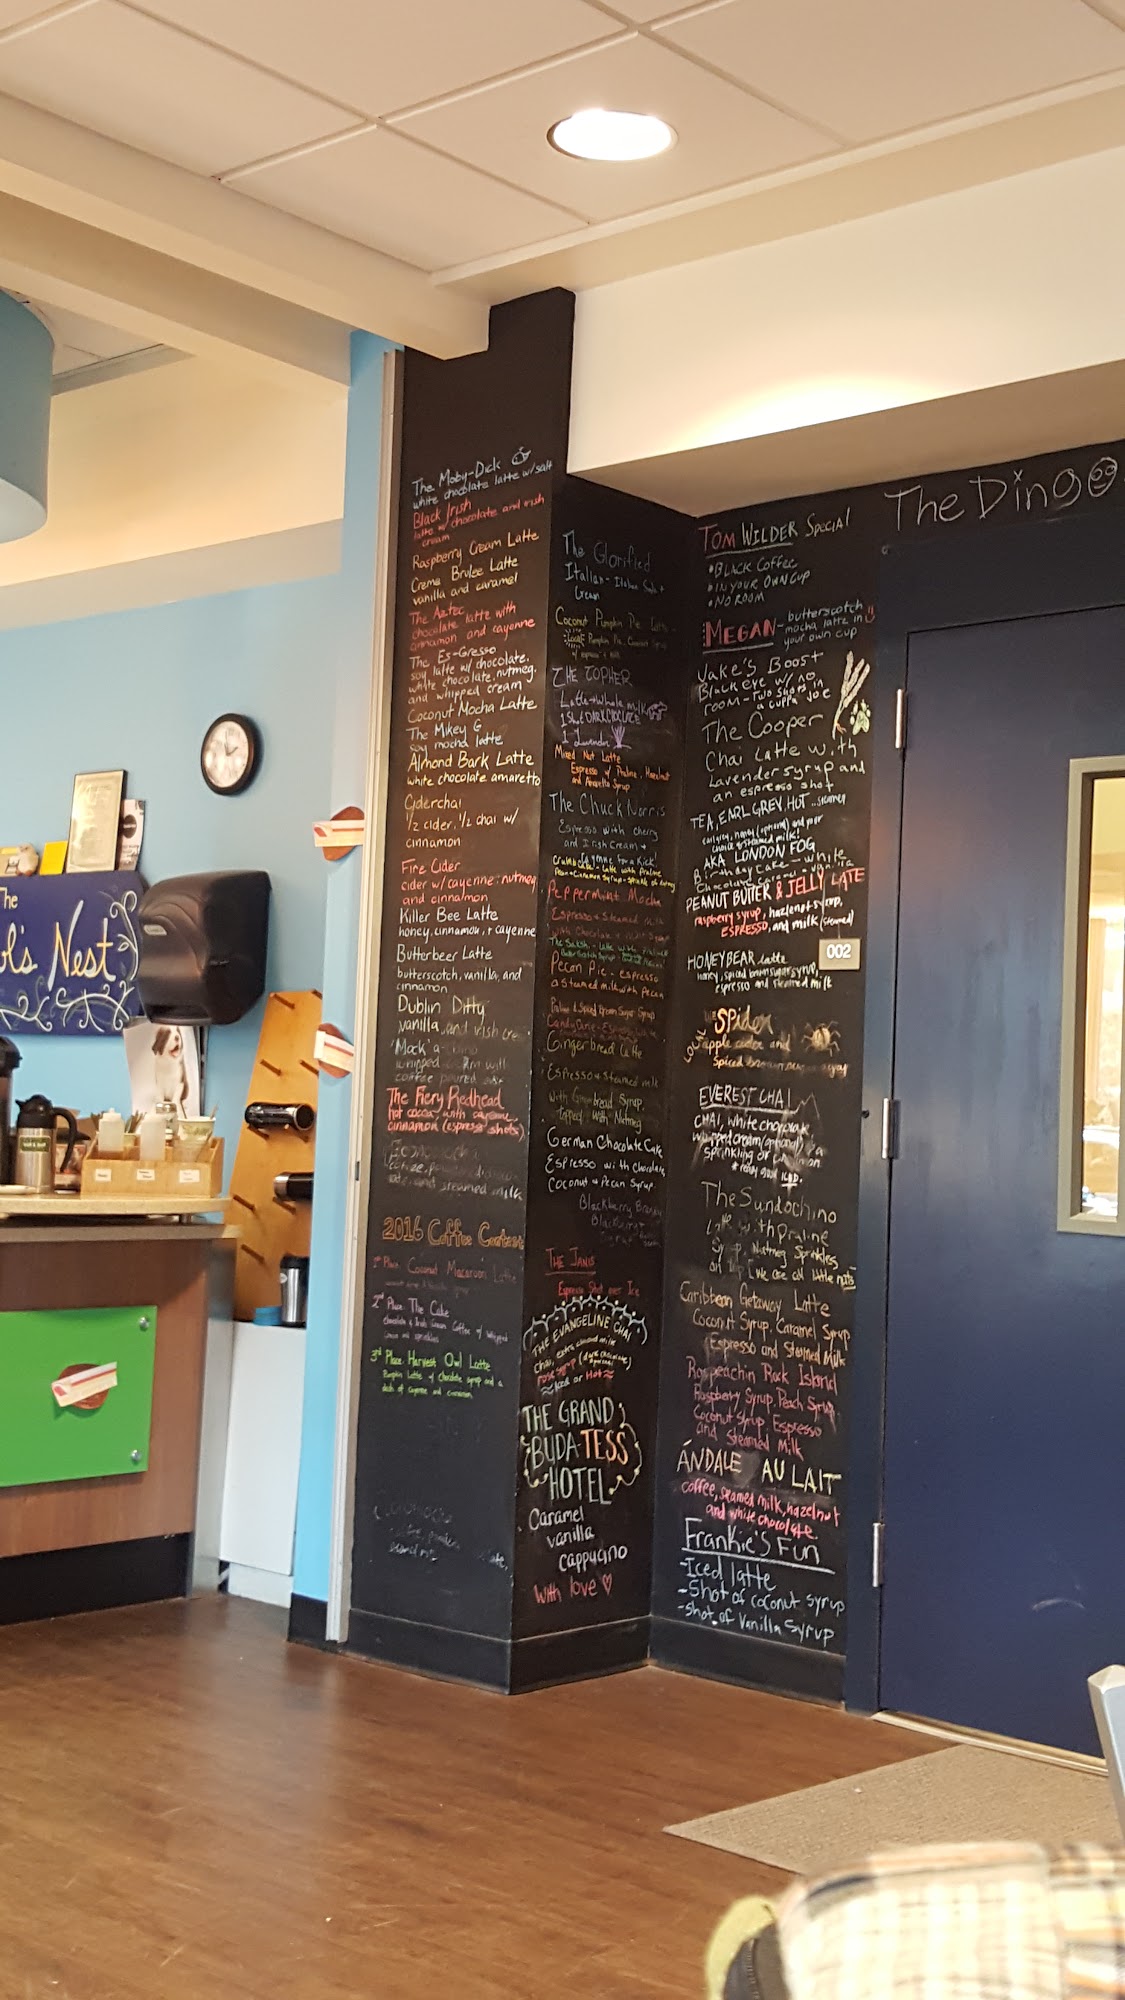 The
ol's Nest
The Moby-Dick
white chocolate latte w/salt
Black Irish
latte w/ chocolate and irish
cream
Raspberry Cream Latte
Creme Brulee Latte
vanilla and caramel
The Aztec
chocolate latte with
cinnamon and cayenne
The Es-Gresso
soy latte w/ chocolate,
white chocolate, nutmeg,
and whipped cream
Coconut Mocha Latte
The Mikey G
soy mocha latte
Almond Bark Latte
white chocolate amaretto
Ciderchai
1/2 cider, 1/2 chai w/
cinnamon
Fire Cider
cider w/ cayenne, nutmeg
and cinnamon
Killer Bee Latte
honey, cinnamon, + cayenne
Butterbeer Latte
butterscotch, vanilla, and
cinnamon
Dublin Ditty
vanilla and irish cre
'Mock'a-
whipped
coffee poured
The Fiery Redhead
hot cocoa with cayenne
cinnamon (espresso shots)
and steamed milk
2016 Coffee Contest
1st Place: Coconut Macaroon Latte
2nd Place: The Cake
chocolate & Irish Cream Coffee w/ whipped
cream and sprinkles
3rd Place: Harvest Owl Latte
Pumpkin Latte w/ chocolate syrup and a
dash of cayenne and cinnamon
The Glorified
Italian - Italian Soda +
Cream
Coconut Pumpkin Pie Latte
THE TOPHER
Latte + Whole milk
1 Shot DARK CHOCOLATE
1 Lavender
Mixed Nut Latte
Espresso w/ Praline, Hazelnut
and Amaretto Syrup
The Chuck Norris
Espresso with cherry
and Irish Cream +
Cayenne for a Kick!
Peppermint Mocha
Espresso + Steamed milk
with Chocolate +
Pecan Pie - espresso
a steamed milk with pecan
Gingerbread Latte
Espresso + steamed milk
with Gingerbread Syrup,
topped with Nutmeg
German Chocolate Cake
Espresso with chocolate
Coconut + Pecan Syrup.
THE JANIS
Espresso Shot over Ice
THE EVANGELINE CHAI
chai, extra almond milk
rose syrup (dark chocolate)
Iced or Hot
THE GRAND
BUDA-TESS
HOTEL
Caramel
vanilla
cappucino
With love ♡
The Dingo
TOM WILDER Special
• BLACK COFFEE
• IN YOUR OWN CUP
• NO ROOM
MEGAN - butterscotch
mocha latte in
your own cup
Jake's Boost
Black eye w/ no
room - Two shots in
a cuppa joe
The Cooper
Chai Latte with
Lavender syrup and
an espresso shot
TEA, EARL GREY, HOT
earl grey, honey (optional) and your
choice of steamed milk!
AKA LONDON FOG
Birthday Cake - White
Chocolate
PEANUT BUTTER & JELLY LATE
raspberry syrup, hazelnut syrup,
ESPRESSO, and milk (steamed)
002
HONEYBEAR latte
honey, spiced brown sugar syrup,
espresso and steamed milk
Spider
LOCAL apple cider and
Spiced
EVEREST CHAI
CHAI, white chocolate,
whipped cream (optional),
sprinkling of cinnamon
The Sundochino
Latte with praline
Syrup, Nutmeg Sprinkles
on top [We are all little nuts]
Caribbean Getaway Latte
Coconut Syrup, Caramel Syrup
Espresso and Steamed Milk
Raspeachin Rock Island
Raspberry Syrup, Peach Syrup
Coconut syrup, Espresso
and Steamed Milk
ÁNDALE AU LAIT
coffee, steamed milk, hazelnut
and white chocolate.
Frankie's Fun
-Iced latte
-Shot of coconut syrup
-Shot of Vanilla Syrup